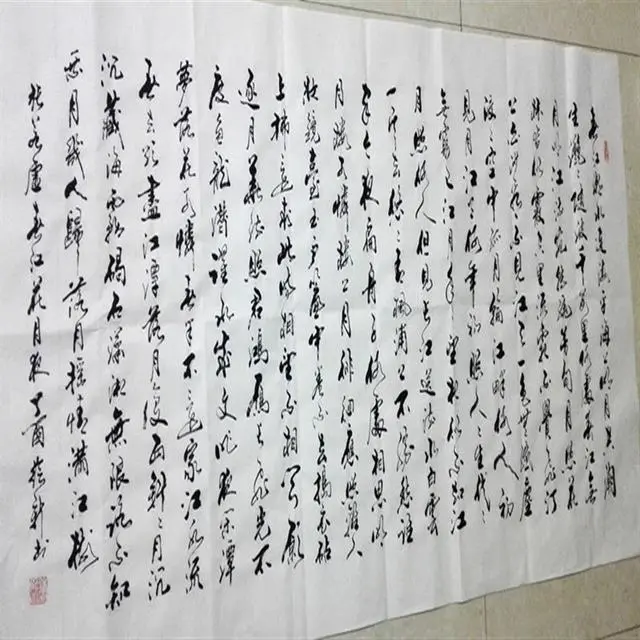 春江潮水連海平海上明月共潮
生灩灩隨波千萬里何處春江無
月明江流宛轉繞芳甸月照花
林皆似霰空里流霜不覺飛汀
上白沙看不見江天一色無纖塵
皎皎空中孤月輪江畔何人初
見月江月何年初照人人生代代
無窮已江月年年望相似不知江
月照何人但見長江送流水白雲
一片去悠悠青楓浦上不勝愁誰
家今夜扁舟子何處相思明
月樓可憐樓上月徘徊應照離人
妝鏡臺玉戶簾中卷不去搗衣砧
上拂還來此時相望不相聞願
逐月華流照君鴻雁長飛光不
度魚龍潛躍水成文昨夜閑潭
夢落花可憐春半不還家江水流
春去欲盡江潭落月復西斜斜月沉
沉藏海霧碣石瀟湘無限路不知
乘月幾人歸落月搖情滿江樹
張若虛春江花月夜丁酉軒書